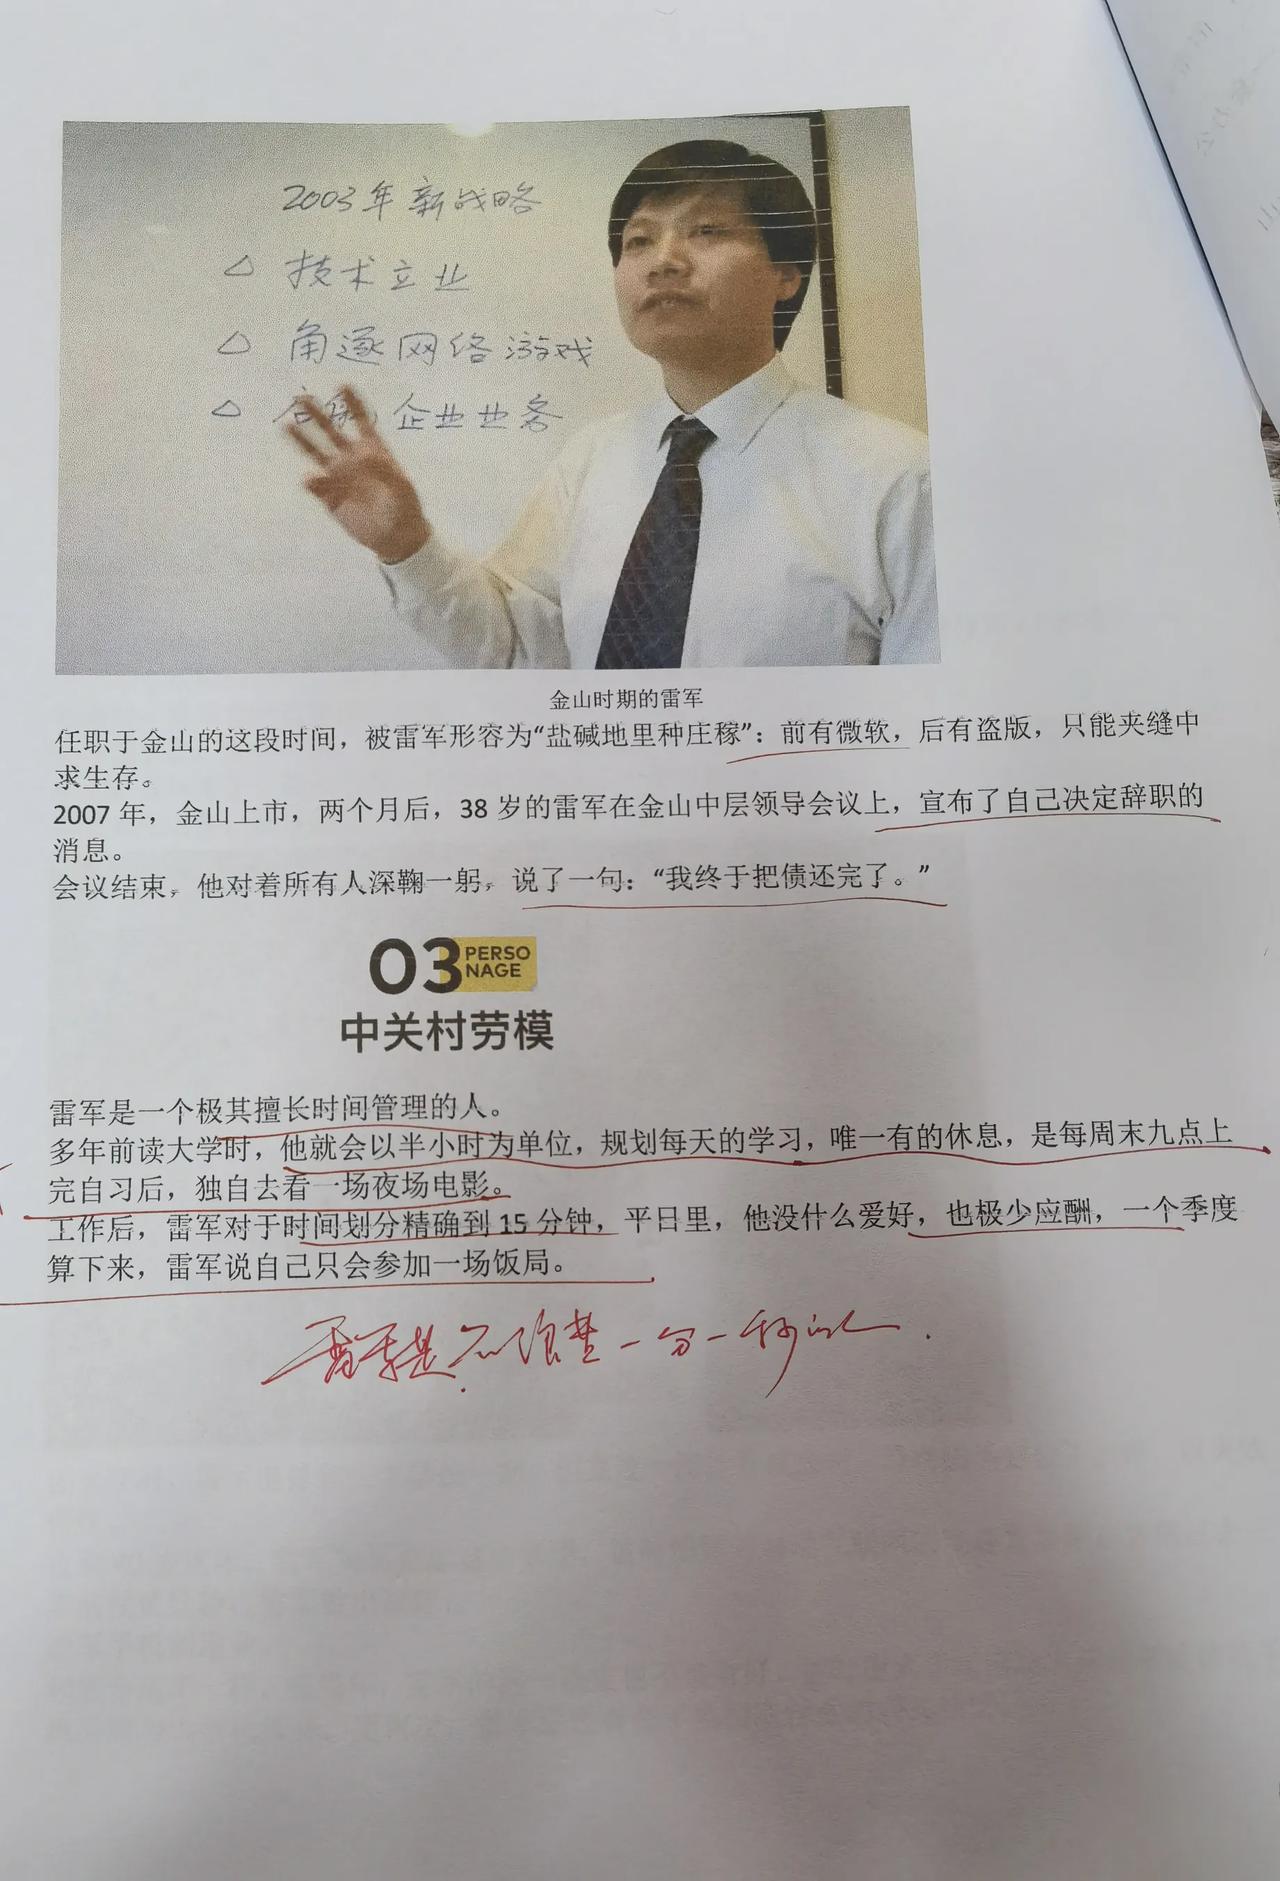 2003年新战略
△ 技术立业
△ 角逐网络游戏
△ 企业业务
金山时期的雷军
任职于金山的这段时间，被雷军形容为“盐碱地里种庄稼”：前有微软，后有盗版，只能夹缝中
求生存。
2007 年，金山上市，两个月后，38 岁的雷军在金山中层领导会议上，宣布了自己决定辞职的
消息。
会议结束，他对着所有人深鞠一躬，说了一句：“我终于把债还完了。”
03 PERSO
NAGE
中关村劳模
雷军是一个极其擅长时间管理的人。
多年前读大学时，他就会以半小时为单位，规划每天的学习，唯一有的休息，是每周末九点上
完自习后，独自去看一场夜场电影。
工作后，雷军对于时间划分精确到 15 分钟，平日里，他没什么爱好，也极少应酬，一个季度
算下来，雷军说自己只会参加一场饭局。
雷军是不浪费一分一秒的人.